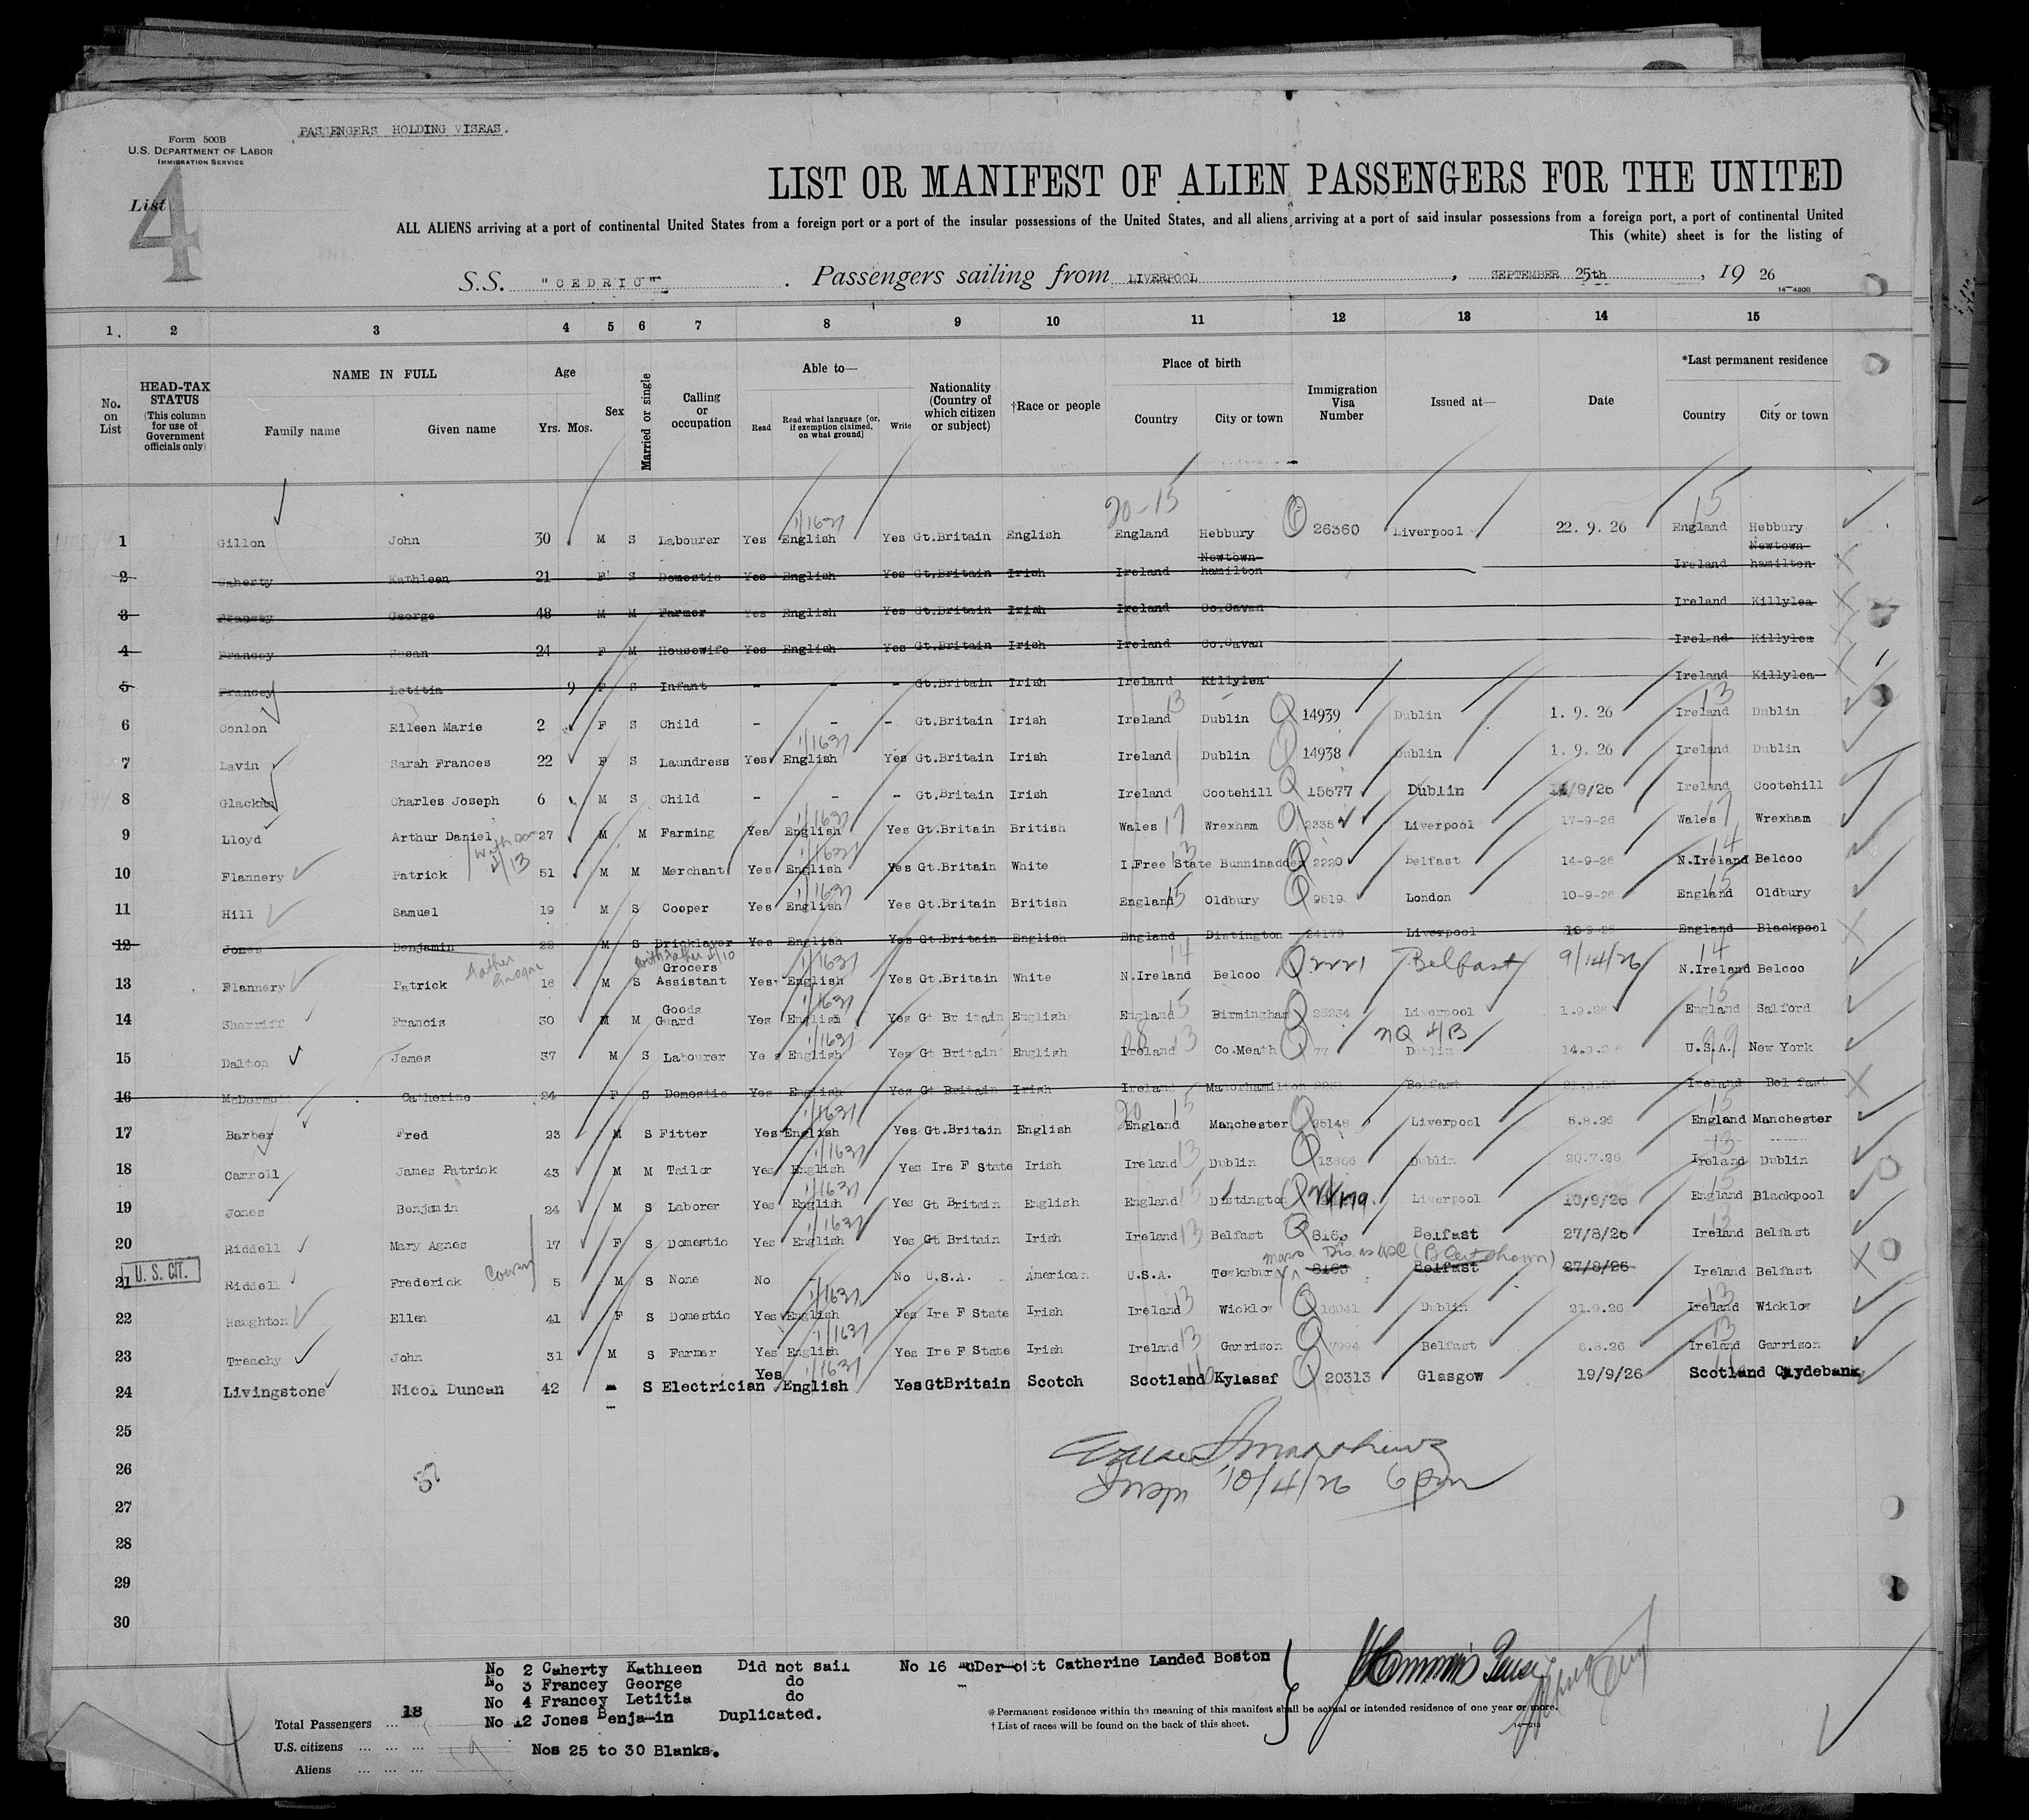 PASSENGERS HOLDING VISEAS.
Form 500B
U.S. DEPARTMENT OF LABOR
IMMIGRATION SERVICE
List
4
LIST OR MANIFEST OF ALIEN PASSENGERS FOR THE UNITED
ALL ALIENS arriving at a port of continental United States from a foreign port or a port of the insular possessions of the United States, and all aliens arriving at a port of said insular possessions from a foreign port, a port of continental United
This (white) sheet is for the listing of
S.S. "CEDRIC". Passengers sailing from LIVERPOOL, SEPTEMBER 25th, 1926
14—430B
1. 2 3 4 5 6 7 8 9 10 11 12 13 14 15
No. on List
HEAD-TAX STATUS (This column for use of Government officials only)
NAME IN FULL
Family name Given name
Age
Yrs. Mos.
Sex
Married or single
Calling or occupation
Able to—
Read Read what language [or, if exemption claimed, on what ground] Write
Nationality (Country of which citizen or subject)
†Race or people
Place of birth
Country City or town
Immigration Visa Number
Issued at—
Date
*Last permanent residence
Country City or town
20-15 15
1/1637
1 Gillon John 30 M S Labourer Yes English Yes Gt.Britain English England Hebbury 26360 Liverpool 22. 9. 26 England Hebbury
2 Caherty Kathleen 21 F S Domestic Yes English Yes Gt.Britain Irish Ireland Newtown-hamilton Ireland Newtown-hamilton
3 Francey George 48 M M Farmer Yes English Yes Gt.Britain Irish Ireland Co.Cavan Ireland Killylea
4 Francey Susan 24 F M Housewife Yes English Yes Gt.Britain Irish Ireland Co.Cavan Ireland Killylea
5 Francey Letitia 9 F S Infant - - - Gt.Britain Irish Ireland Killylea Ireland Killylea
6 Conlon Eileen Marie 2 F S Child - - - Gt.Britain Irish Ireland 13 Dublin 14939 Dublin 1. 9. 26 Ireland 13 Dublin
1/1637
7 Lavin Sarah Frances 22 F S Laundress Yes English Yes Gt.Britain Irish Ireland Dublin 14938 Dublin 1. 9. 26 Ireland Dublin
8 Glackan Charles Joseph 6 M S Child - - - Gt.Britain Irish Ireland Cootehill 15677 Dublin /9/26 Ireland Cootehill
1/1637
9 Lloyd Arthur Daniel 27 M M Farming Yes English Yes Gt.Britain British Wales 17 Wrexham 2335 Liverpool 17-9-26 Wales 17 Wrexham
4/13
1/1637
10 Flannery Patrick 51 M M Merchant Yes English Yes Gt.Britain White I.Free State 13 Bunninadden 2220 Belfast 14-9-26 N.Ireland 14 Belcoo
1/1637
11 Hill Samuel 19 M S Cooper Yes English Yes Gt.Britain British England 15 Oldbury 9519 London 10-9-26 England 15 Oldbury
12 Jones Benjamin 22 M S Bricklayer Yes English Yes Gt.Britain English England Distington 24179 Liverpool 10-9-26 England Blackpool
with father 4/10
1/1637
13 Flannery Patrick 16 M S Grocers Assistant Yes English Yes Gt.Britain White N.Ireland 14 Belcoo 2221 Belfast 9/14/26 N.Ireland 14 Belcoo
1/1637
14 Sherriff Francis 30 M M Goods Guard Yes English Yes Gt Britain English England 15 Birmingham 25234 Liverpool 1.9.26 England 15 Salford
1/1637 NQ 4/B
15 Dalton James 37 M S Labourer Yes English Yes Gt Britain English Ireland 13 Co.Meath 77 Dublin 14.9.26 U.S.A. 99 New York
16 McDermott Catherine 24 F S Domestic Yes English Yes Gt Britain Irish Ireland Manorhamilton Belfast Ireland Belfast
1/1637
17 Barber Fred 23 M S Fitter Yes English Yes Gt.Britain English 20 15 England Manchester 25148 Liverpool 5.8.26 England 15 Manchester
1/1637
18 Carroll James Patrick 43 M M Tailor Yes English Yes Ire F State Irish Ireland 13 Dublin 13866 Dublin 20.7.26 Ireland 13 Dublin
1/1637
19 Jones Benjmin 24 M S Laborer Yes English Yes Gt Britain English England 15 Distington Liverpool 10/9/26 England 15 Blackpool
1/1637
20 Riddell Mary Agnes 17 F S Domestic Yes English Yes Gt Britain Irish Ireland 13 Belfast 816 Belfast 27/8/26 Ireland 13 Belfast
Mass Dis. as USC (B Cert shown)
U. S. CIT.
21 Riddell Frederick Cousin 5 M S None No - No U.S.A. American U.S.A. Tewksbury 8163 Belfast 27/8/26 Ireland Belfast
1/1637
22 Haughton Ellen 41 F S Domestic Yes English Yes Ire F State Irish Ireland 13 Wicklow 16041 Dublin 21.9.26 Ireland 13 Wicklow
1/1637
23 Treachy John 31 M S Farmer Yes English Yes Ire F State Irish Ireland 13 Garrison 7994 Belfast 6.8.26 Ireland 13 Garrison
1/1637
24 Livingstone Nicol Duncan 42 - S Electrician Yes English Yes GtBritain Scotch Scotland Kylasaf 20313 Glasgow 19/9/26 Scotland Clydebank
25
26
27
28
29
30
37
Insp 10/4/26 6 pm
No 2 Caherty Kathleen Did not sail No 16 McDermott Catherine Landed Boston
No 3 Francey George do
No 4 Francey Letitia do
No 12 Jones Benjamin Duplicated.
Nos 25 to 30 Blanks.
Total Passengers ... 18
U.S. citizens ... ... ...
Aliens ... ... ...
19
* Permanent residence within the meaning of this manifest shall be actual or intended residence of one year or more.
† List of races will be found on the back of this sheet.
14—213